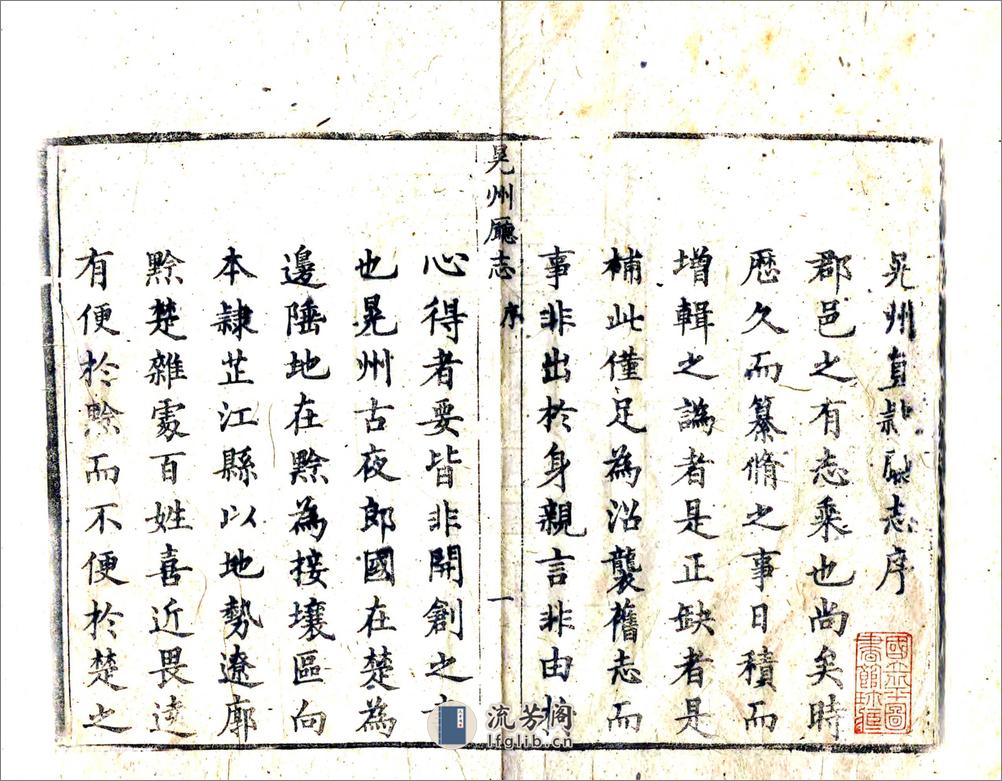 晃州直隸廳志序
郡邑之有志乘也尚矣時
歷久而纂脩之事日積而
增輯之譌者是正缺者是
補此僅足為沿襲舊志而
事非出於身親言非由
晃州廳志 序 一
心得者要皆非開創之
也晃州古夜郎國在楚為
邊陲地在黔為接壤區向
本隸芷江縣以地勢遼廓
黔楚雜處百姓喜近畏遠
有便於黔而不便於楚之
國立北平圖
書館珍藏
流芳阁
lfglib.cn